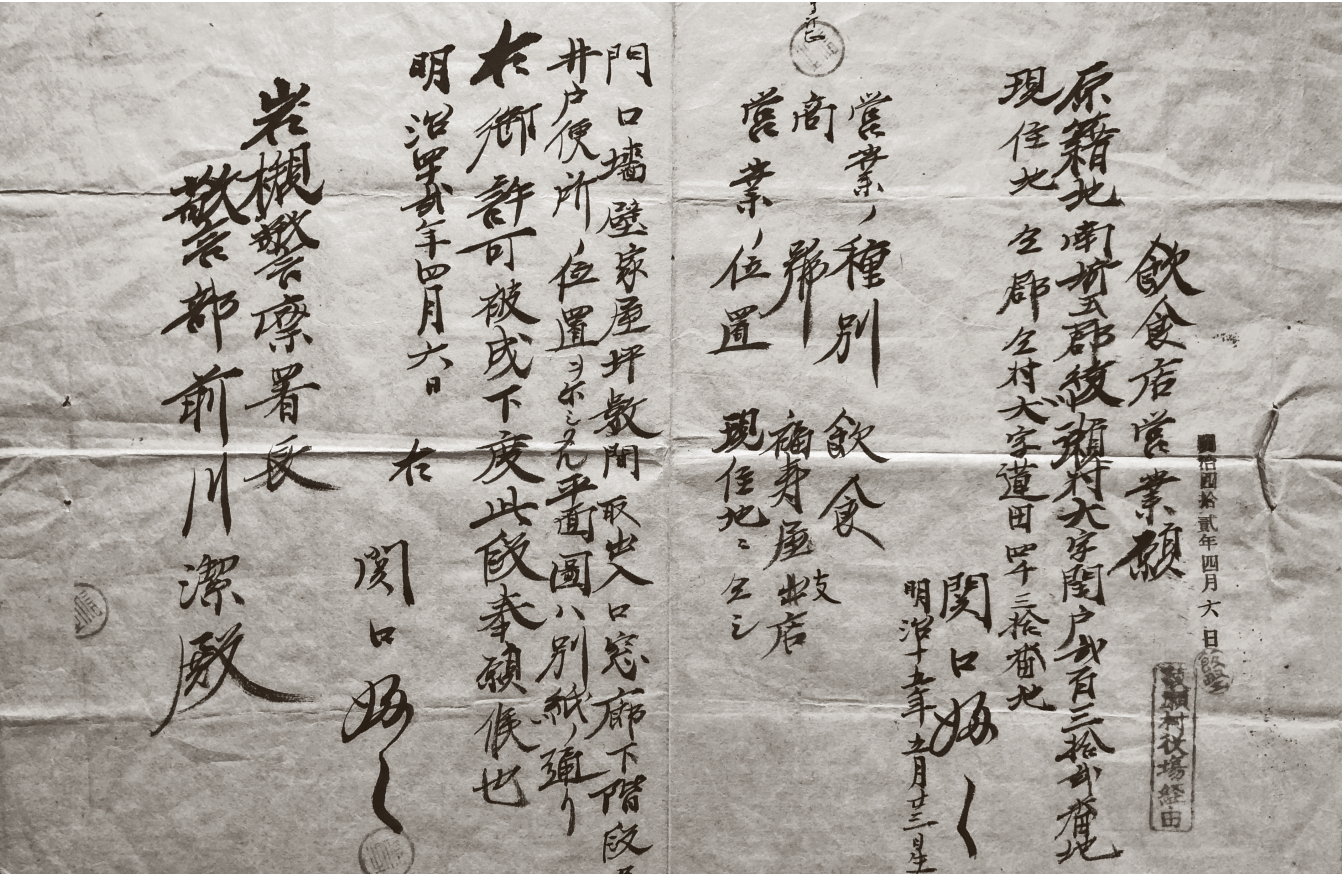 明治四拾貳年四月六日
綾瀬村役場経由
飲食店営業願
原籍地南埼玉郡綾瀬村大字関戸弐百三拾弐番地
現住地仝郡仝村大字蓮田四千三拾番地
関口
明治十九年五月廿三日生
営業ノ種別 飲食
商號 福寿屋支店
営業ノ位置 現住地ニ仝シ
門口墻壁家屋坪数間取出入口窓廊下階段
井戸便所ノ位置ヲ示シタル平面圖ハ別紙ノ通リ
右御許可被成下度此段奉願候也
明治四拾弐年四月六日
右
関口
岩槻警察署長
警部前川潔殿